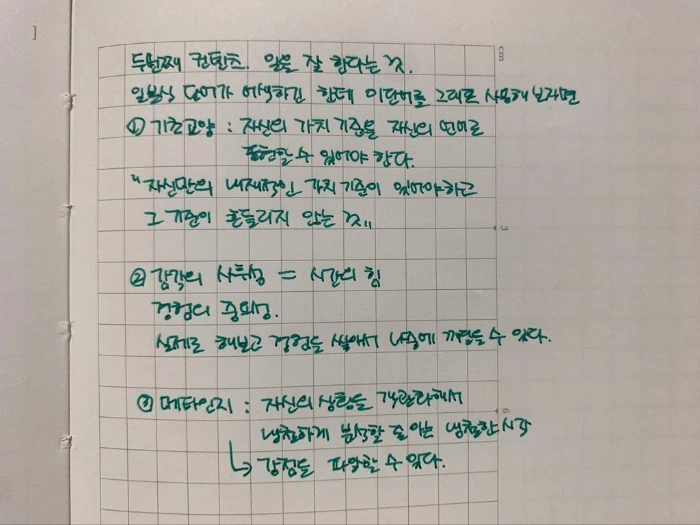 두번째 컨텐츠. 일을 잘 한다는 것.
일본식 단어가 어색하긴 한데 이단어를 그대로 사용해보자면
① 기초교양 : 자신의 가치기준을 자신의 언어로
표현할 수 있어야 한다.
"자신만의 내재적인 가치기준이 있어야하고
그 기준이 흔들리지 않는 것"
② 감각의 사후성 = 시간의 힘
경험의 중요성.
실제로 해보고 경험을 쌓아서 나중에 깨달을 수 있다.
③ 메타인지 : 자신의 상황을 객관화해서
냉철하게 분석할 줄 아는 냉철한 시각
↳ 강점을 파악할 수 있다.